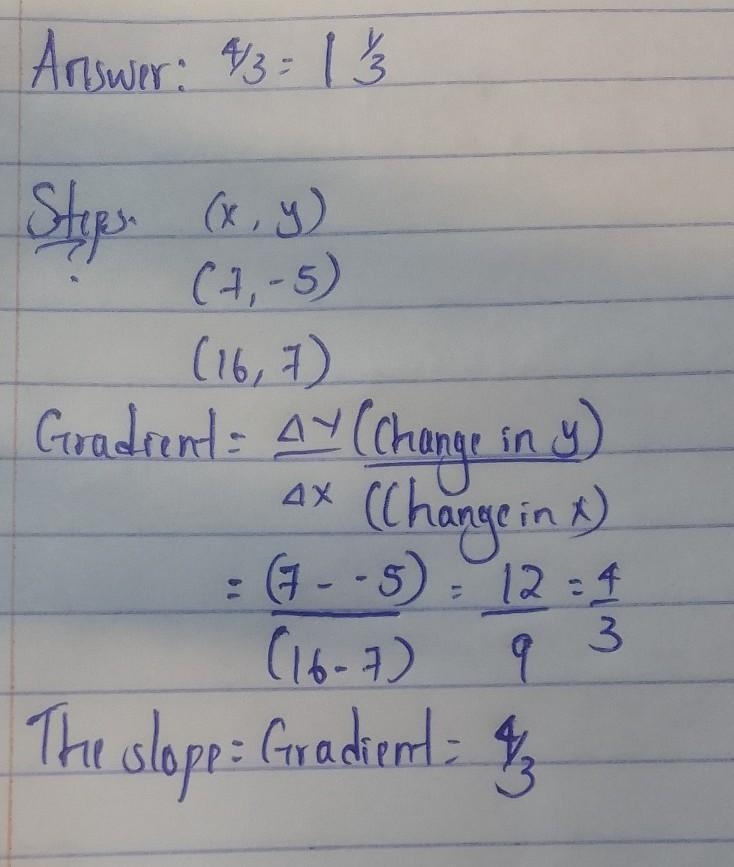 Answer: 4/3 = 1 1/3
Steps. (x, y)
(7, -5)
(16, 7)
Gradient = ΔY (Change in y)
ΔX (Change in x)
= (7 - -5) = 12 = 4
(16-7) 9 3
The slope = Gradient = 4/3